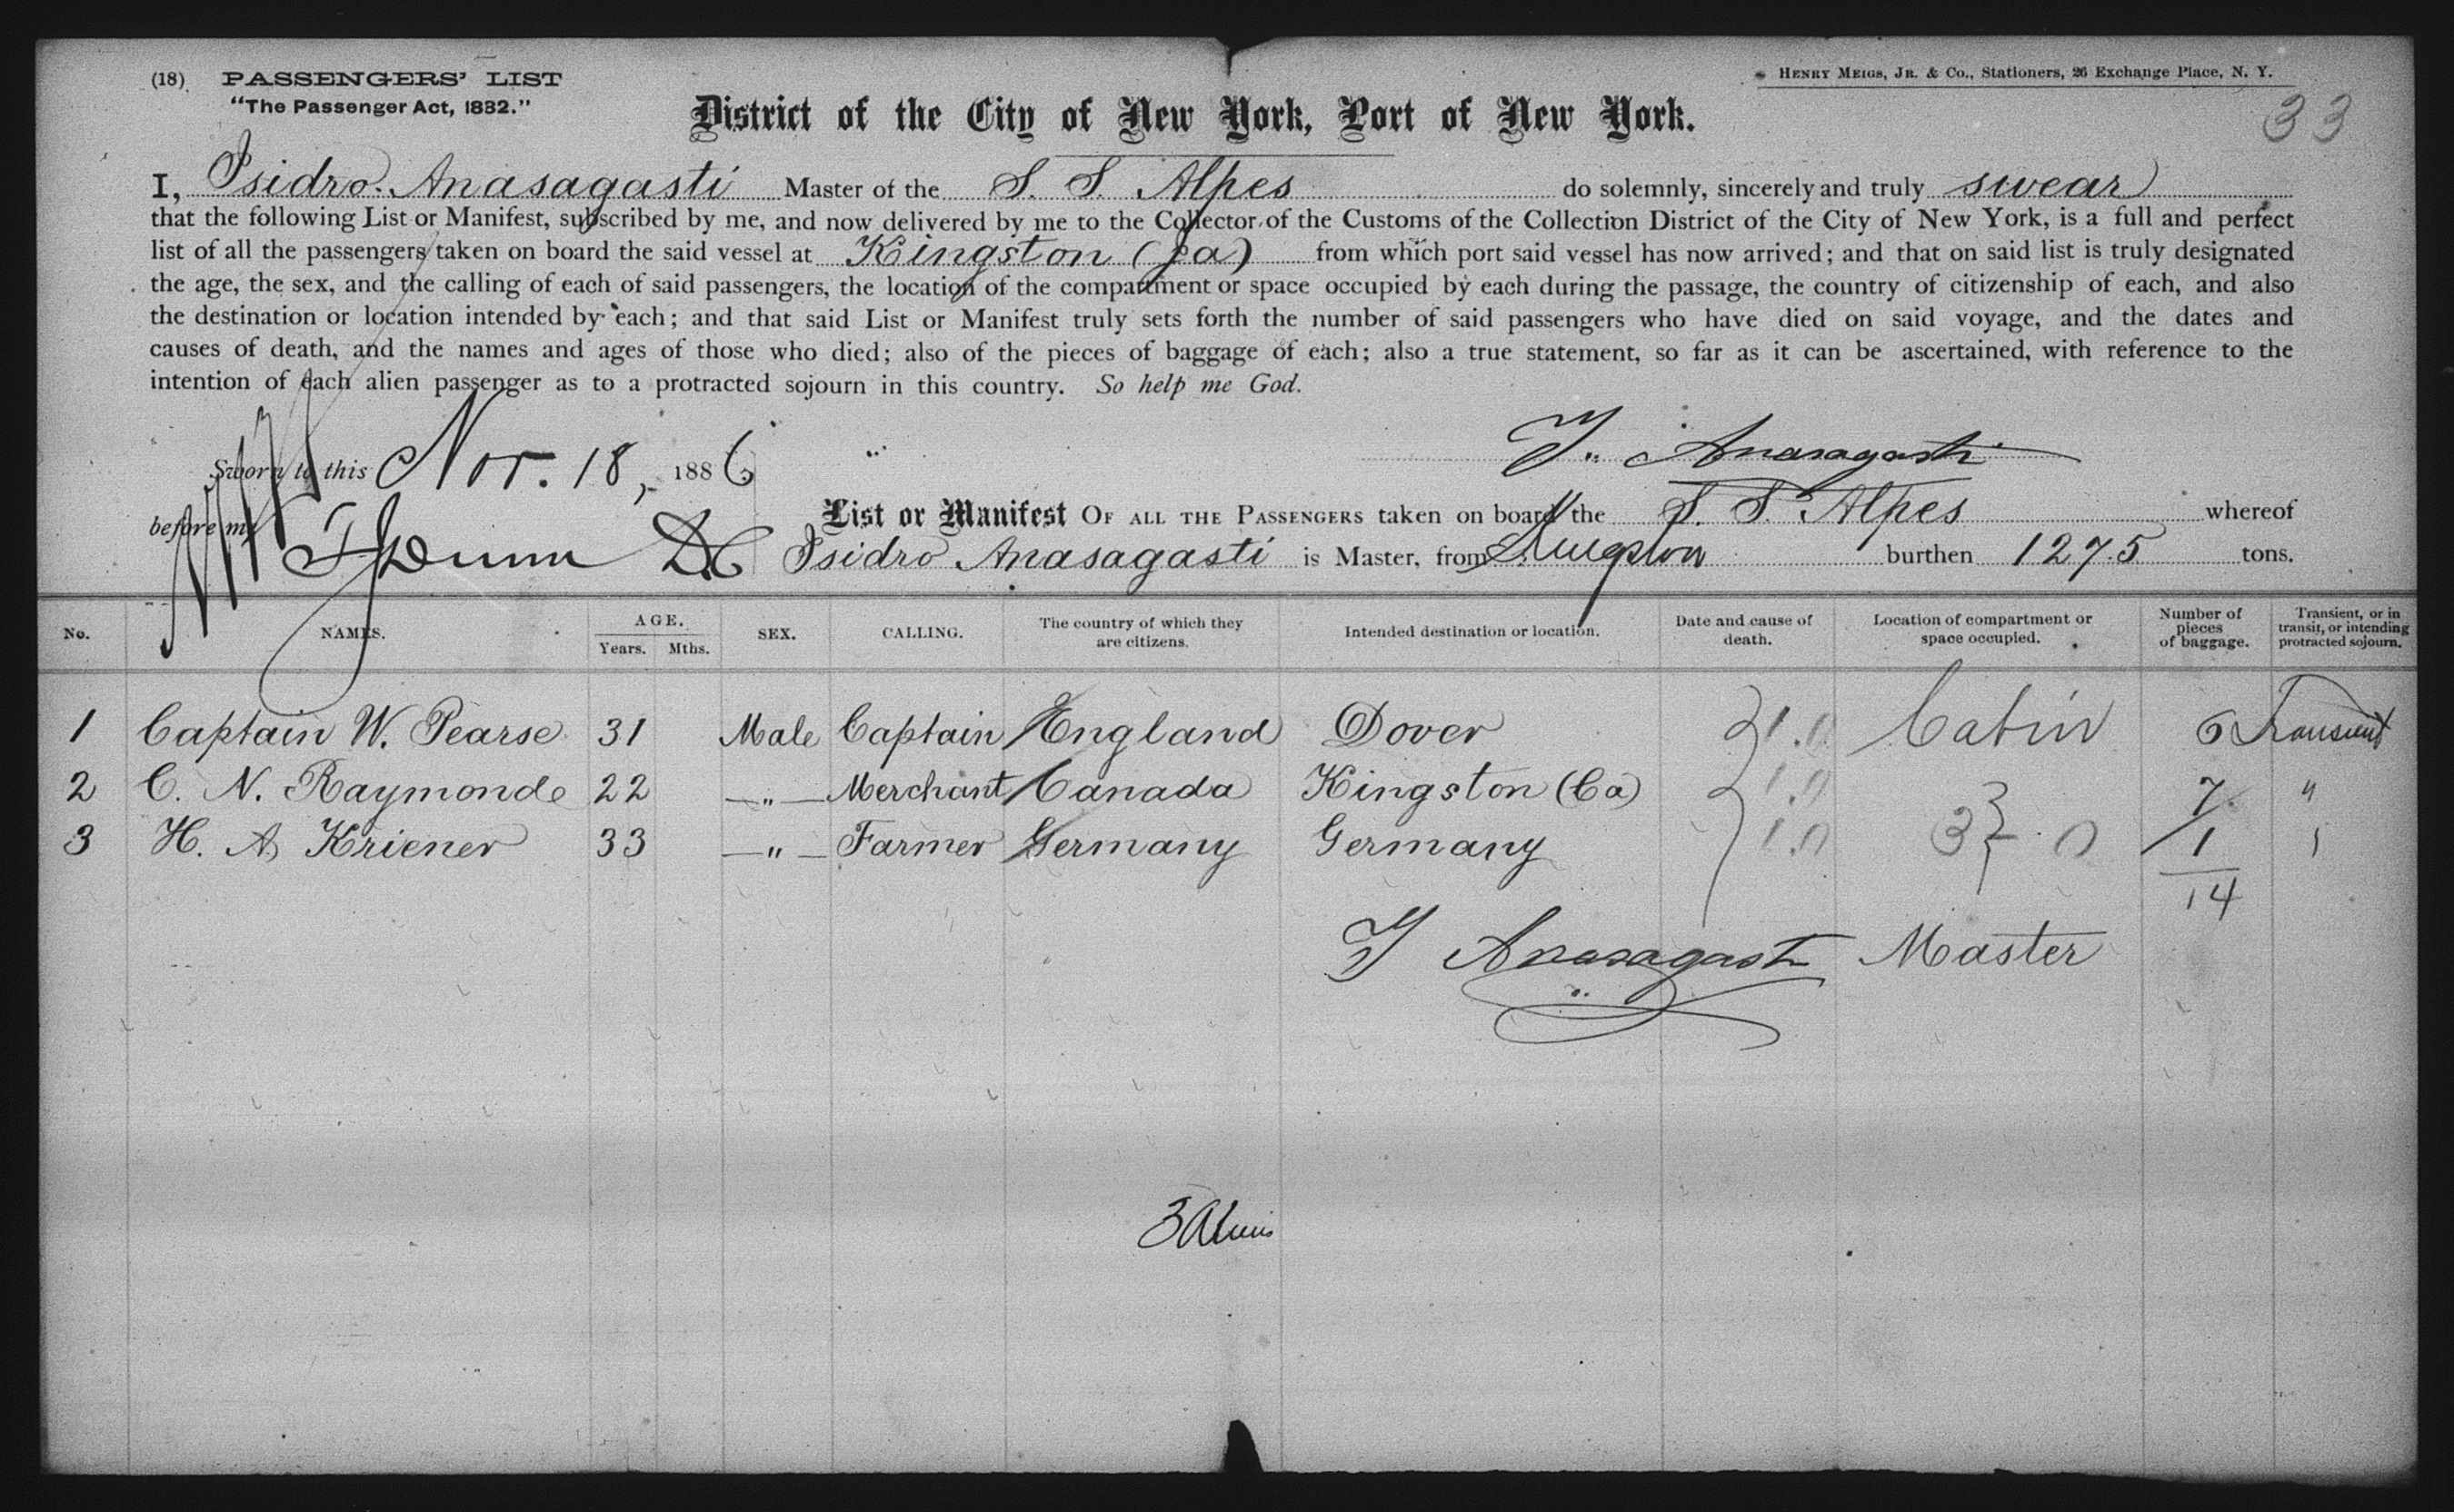 (18) PASSENGERS' LIST
HENRY MEIGS, JR. & CO., Stationers, 26 Exchange Place, N. Y.
"The Passenger Act, 1882."
District of the City of New York, Port of New York.
33
I, Isidro Anasagasti Master of the S. S. Alpes do solemnly, sincerely and truly swear
that the following List or Manifest, subscribed by me, and now delivered by me to the Collector of the Customs of the Collection District of the City of New York, is a full and perfect
list of all the passengers taken on board the said vessel at Kingston (Ja) from which port said vessel has now arrived; and that on said list is truly designated
the age, the sex, and the calling of each of said passengers, the location of the compartment or space occupied by each during the passage, the country of citizenship of each, and also
the destination or location intended by each; and that said List or Manifest truly sets forth the number of said passengers who have died on said voyage, and the dates and
causes of death, and the names and ages of those who died; also of the pieces of baggage of each; also a true statement, so far as it can be ascertained, with reference to the
intention of each alien passenger as to a protracted sojourn in this country. So help me God.
Sworn to this Nov. 18, 1886 Y. Anasagasti
before me
List or Manifest OF ALL THE PASSENGERS taken on board the S. S. Alpes whereof
Isidro Anasagasti is Master, from Kingston burthen 1275 tons.
No. NAMES. AGE. Years. Mths. SEX. CALLING. The country of which they are citizens. Intended destination or location. Date and cause of death. Location of compartment or space occupied. Number of pieces of baggage. Transient, or in transit, or intending protracted sojourn.
1 Captain W. Pearse 31 Male Captain England Dover 1.0 Cabin 6 Transient
2 C. N. Raymonde 22 —"— Merchant Canada Kingston (Ca) 1.0 7 "
3 H. A. Kriener 33 —"— Farmer Germany Germany 1.0 3 0 1 "
14
Y Anasagasti Master
3 Aliens